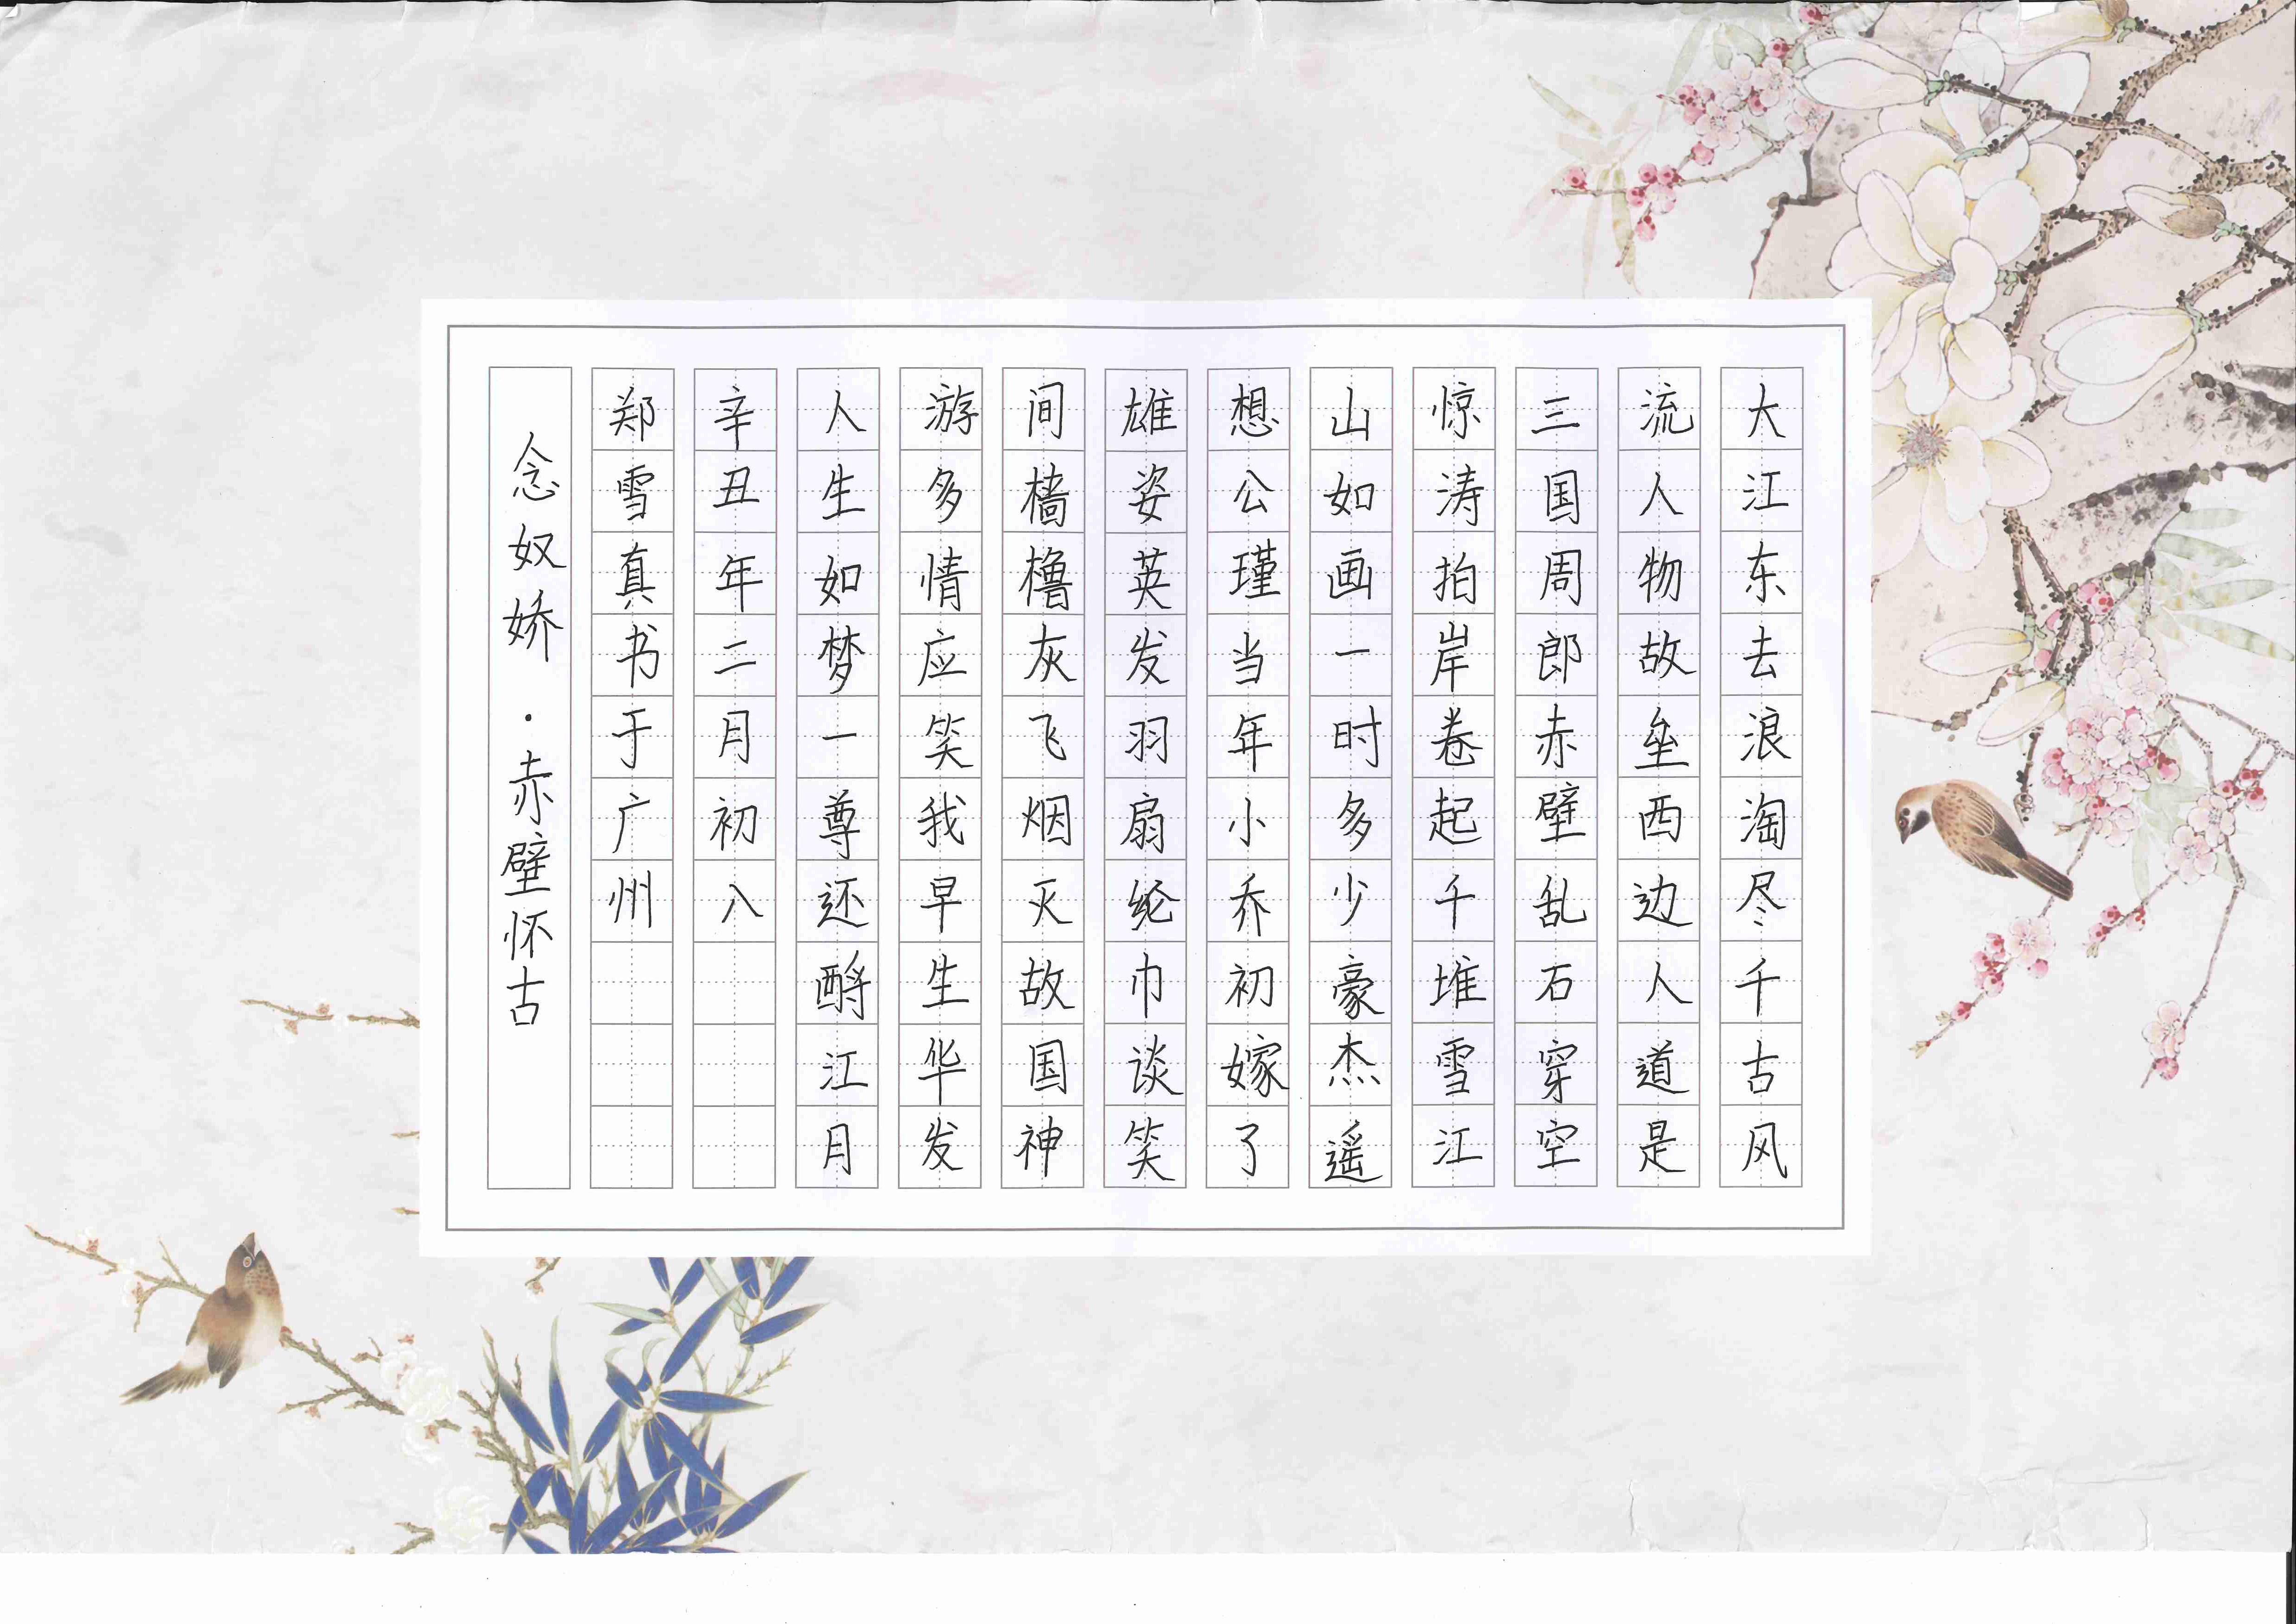 大江东去浪淘尽千古风
流人物故垒西边人道是
三国周郎赤壁乱石穿空
惊涛拍岸卷起千堆雪江
山如画一时多少豪杰遥
想公瑾当年小乔初嫁了
雄姿英发羽扇纶巾谈笑
间樯橹灰飞烟灭故国神
游多情应笑我早生华发
人生如梦一尊还酹江月
辛丑年二月初八
郑雪真书于广州
念奴娇·赤壁怀古